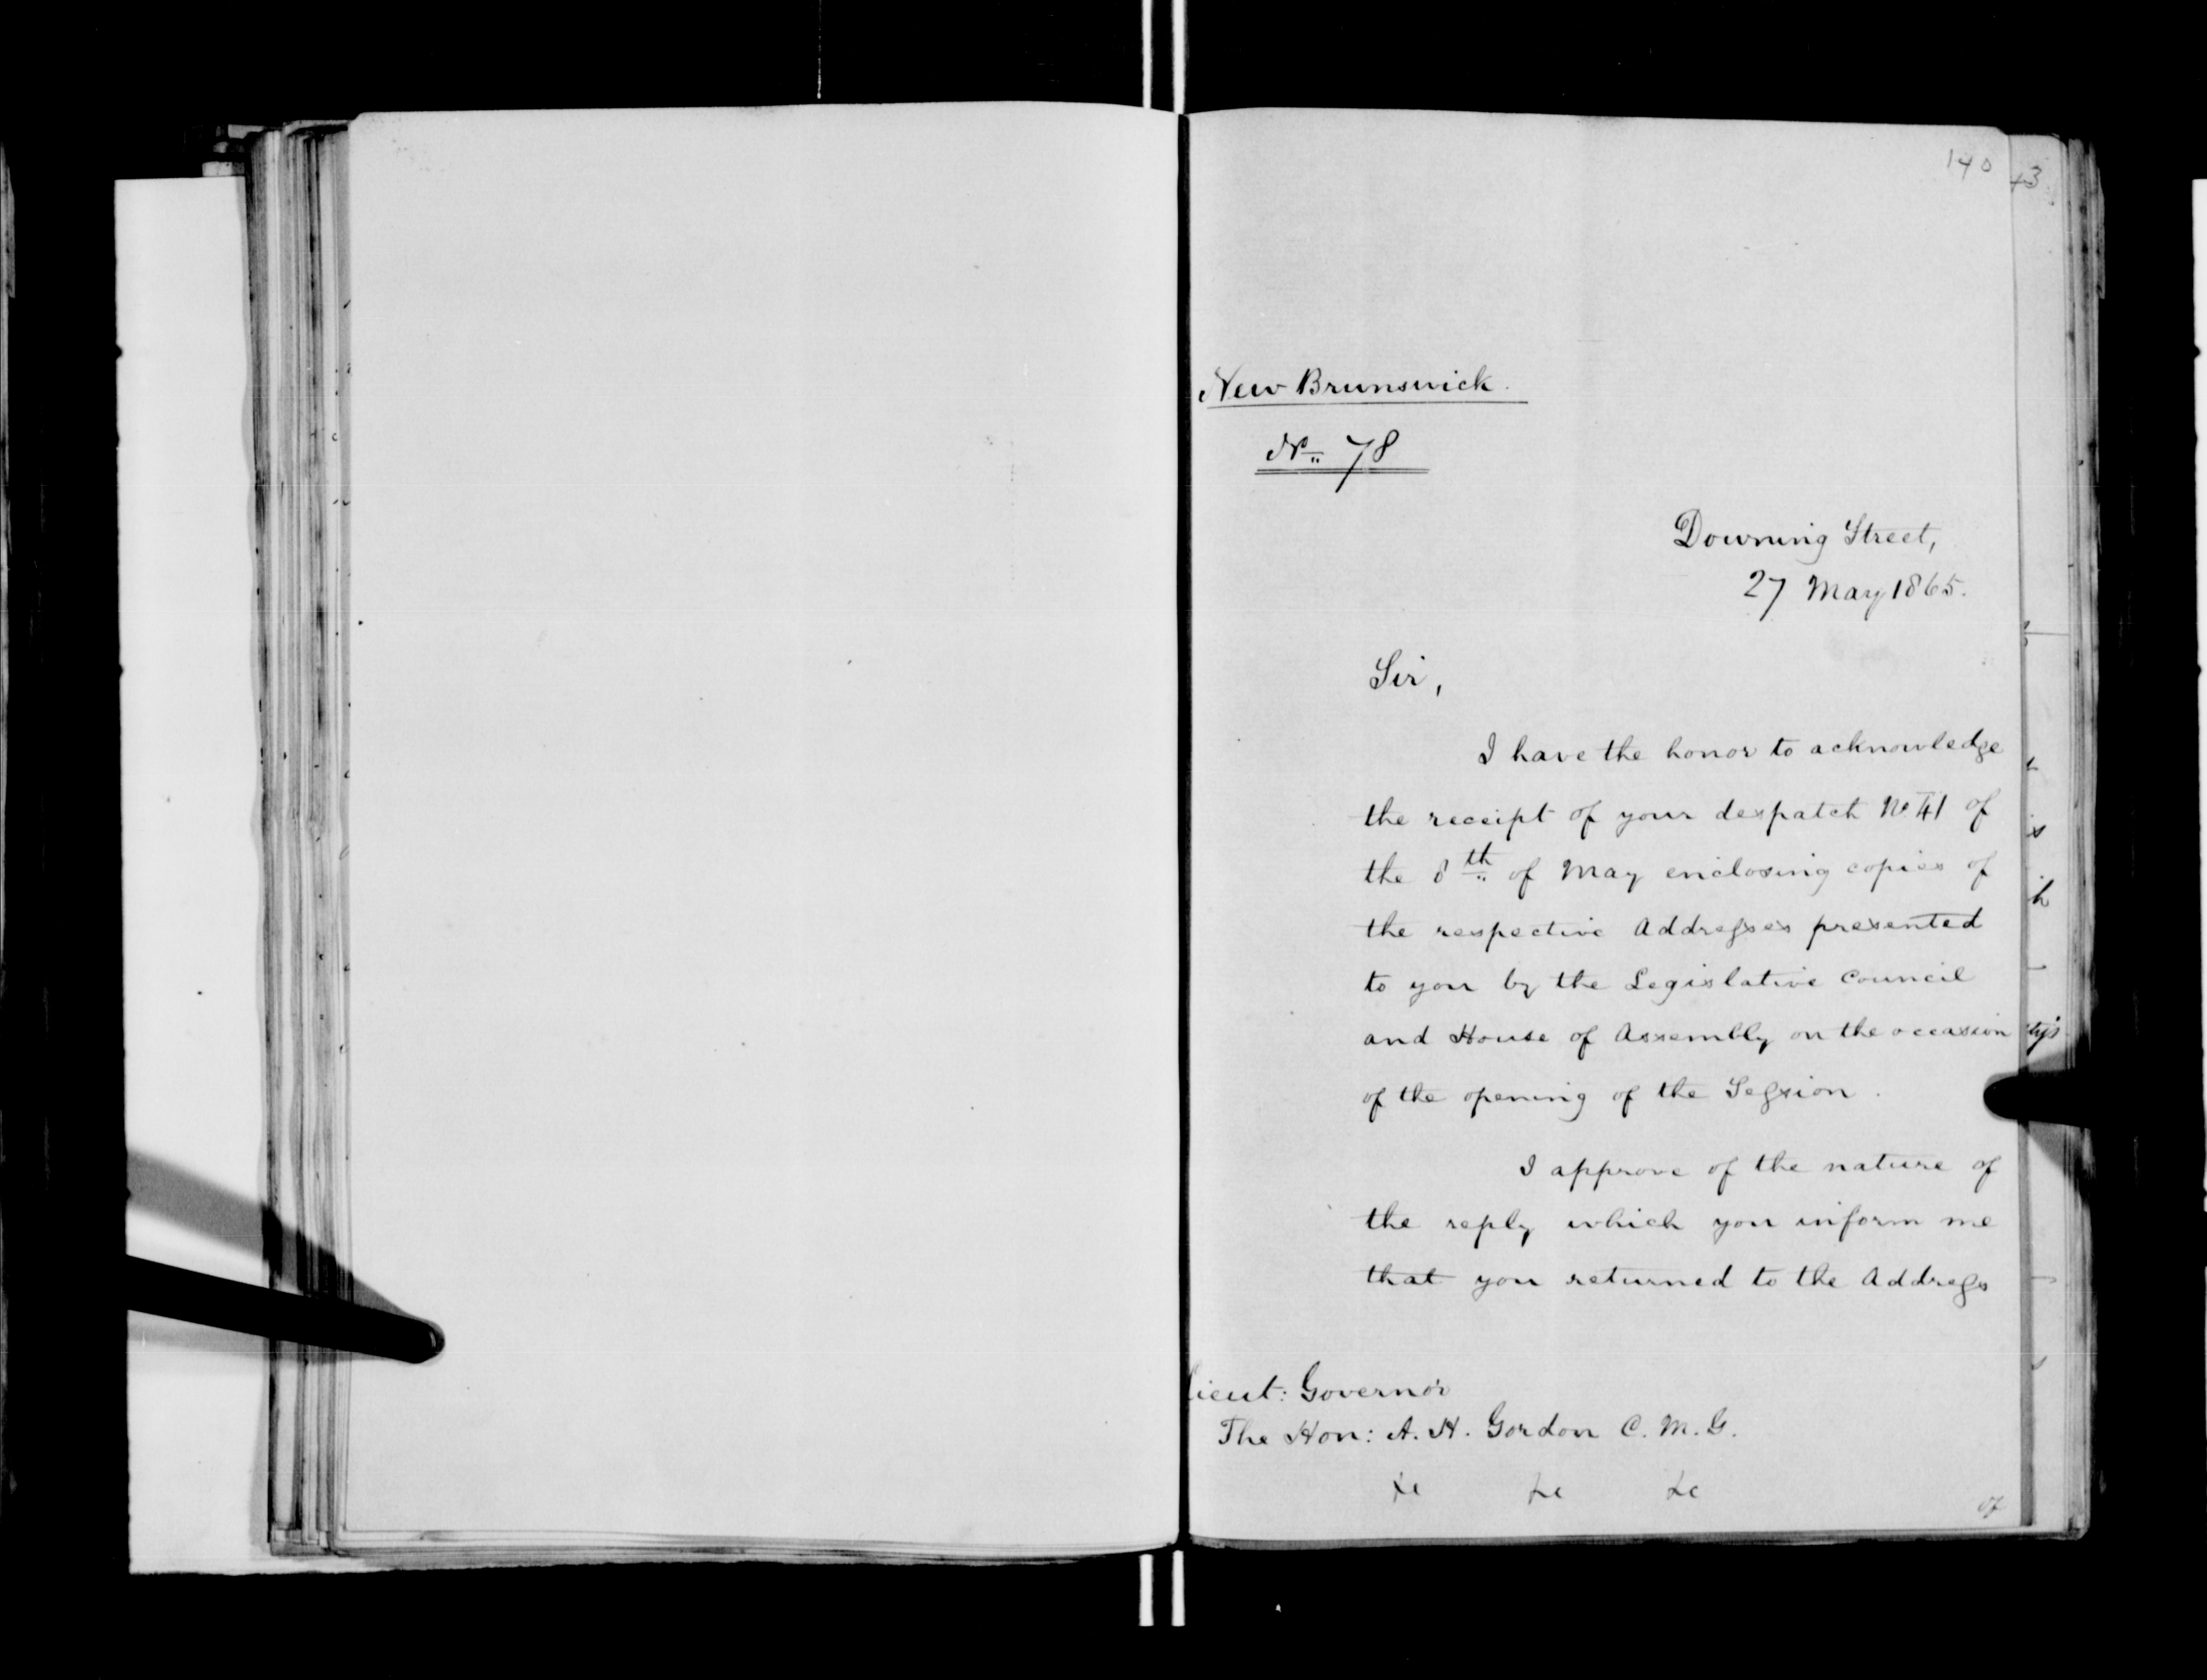 140
New Brunswick.
No. 78
Downing Street,
27 May 1865.
Sir,
I have the honor to acknowledge
the receipt of your despatch No 41 of
the 8th of May enclosing copies of
the respective Addresses presented
to you by the Legislative Council
and House of Assembly on the occasion
of the opening of the Session.
I approve of the nature of
the reply which you inform me
that you returned to the Address
Lieut: Governor
The Hon: A. H. Gordon C. M. G.
&c &c &c
of